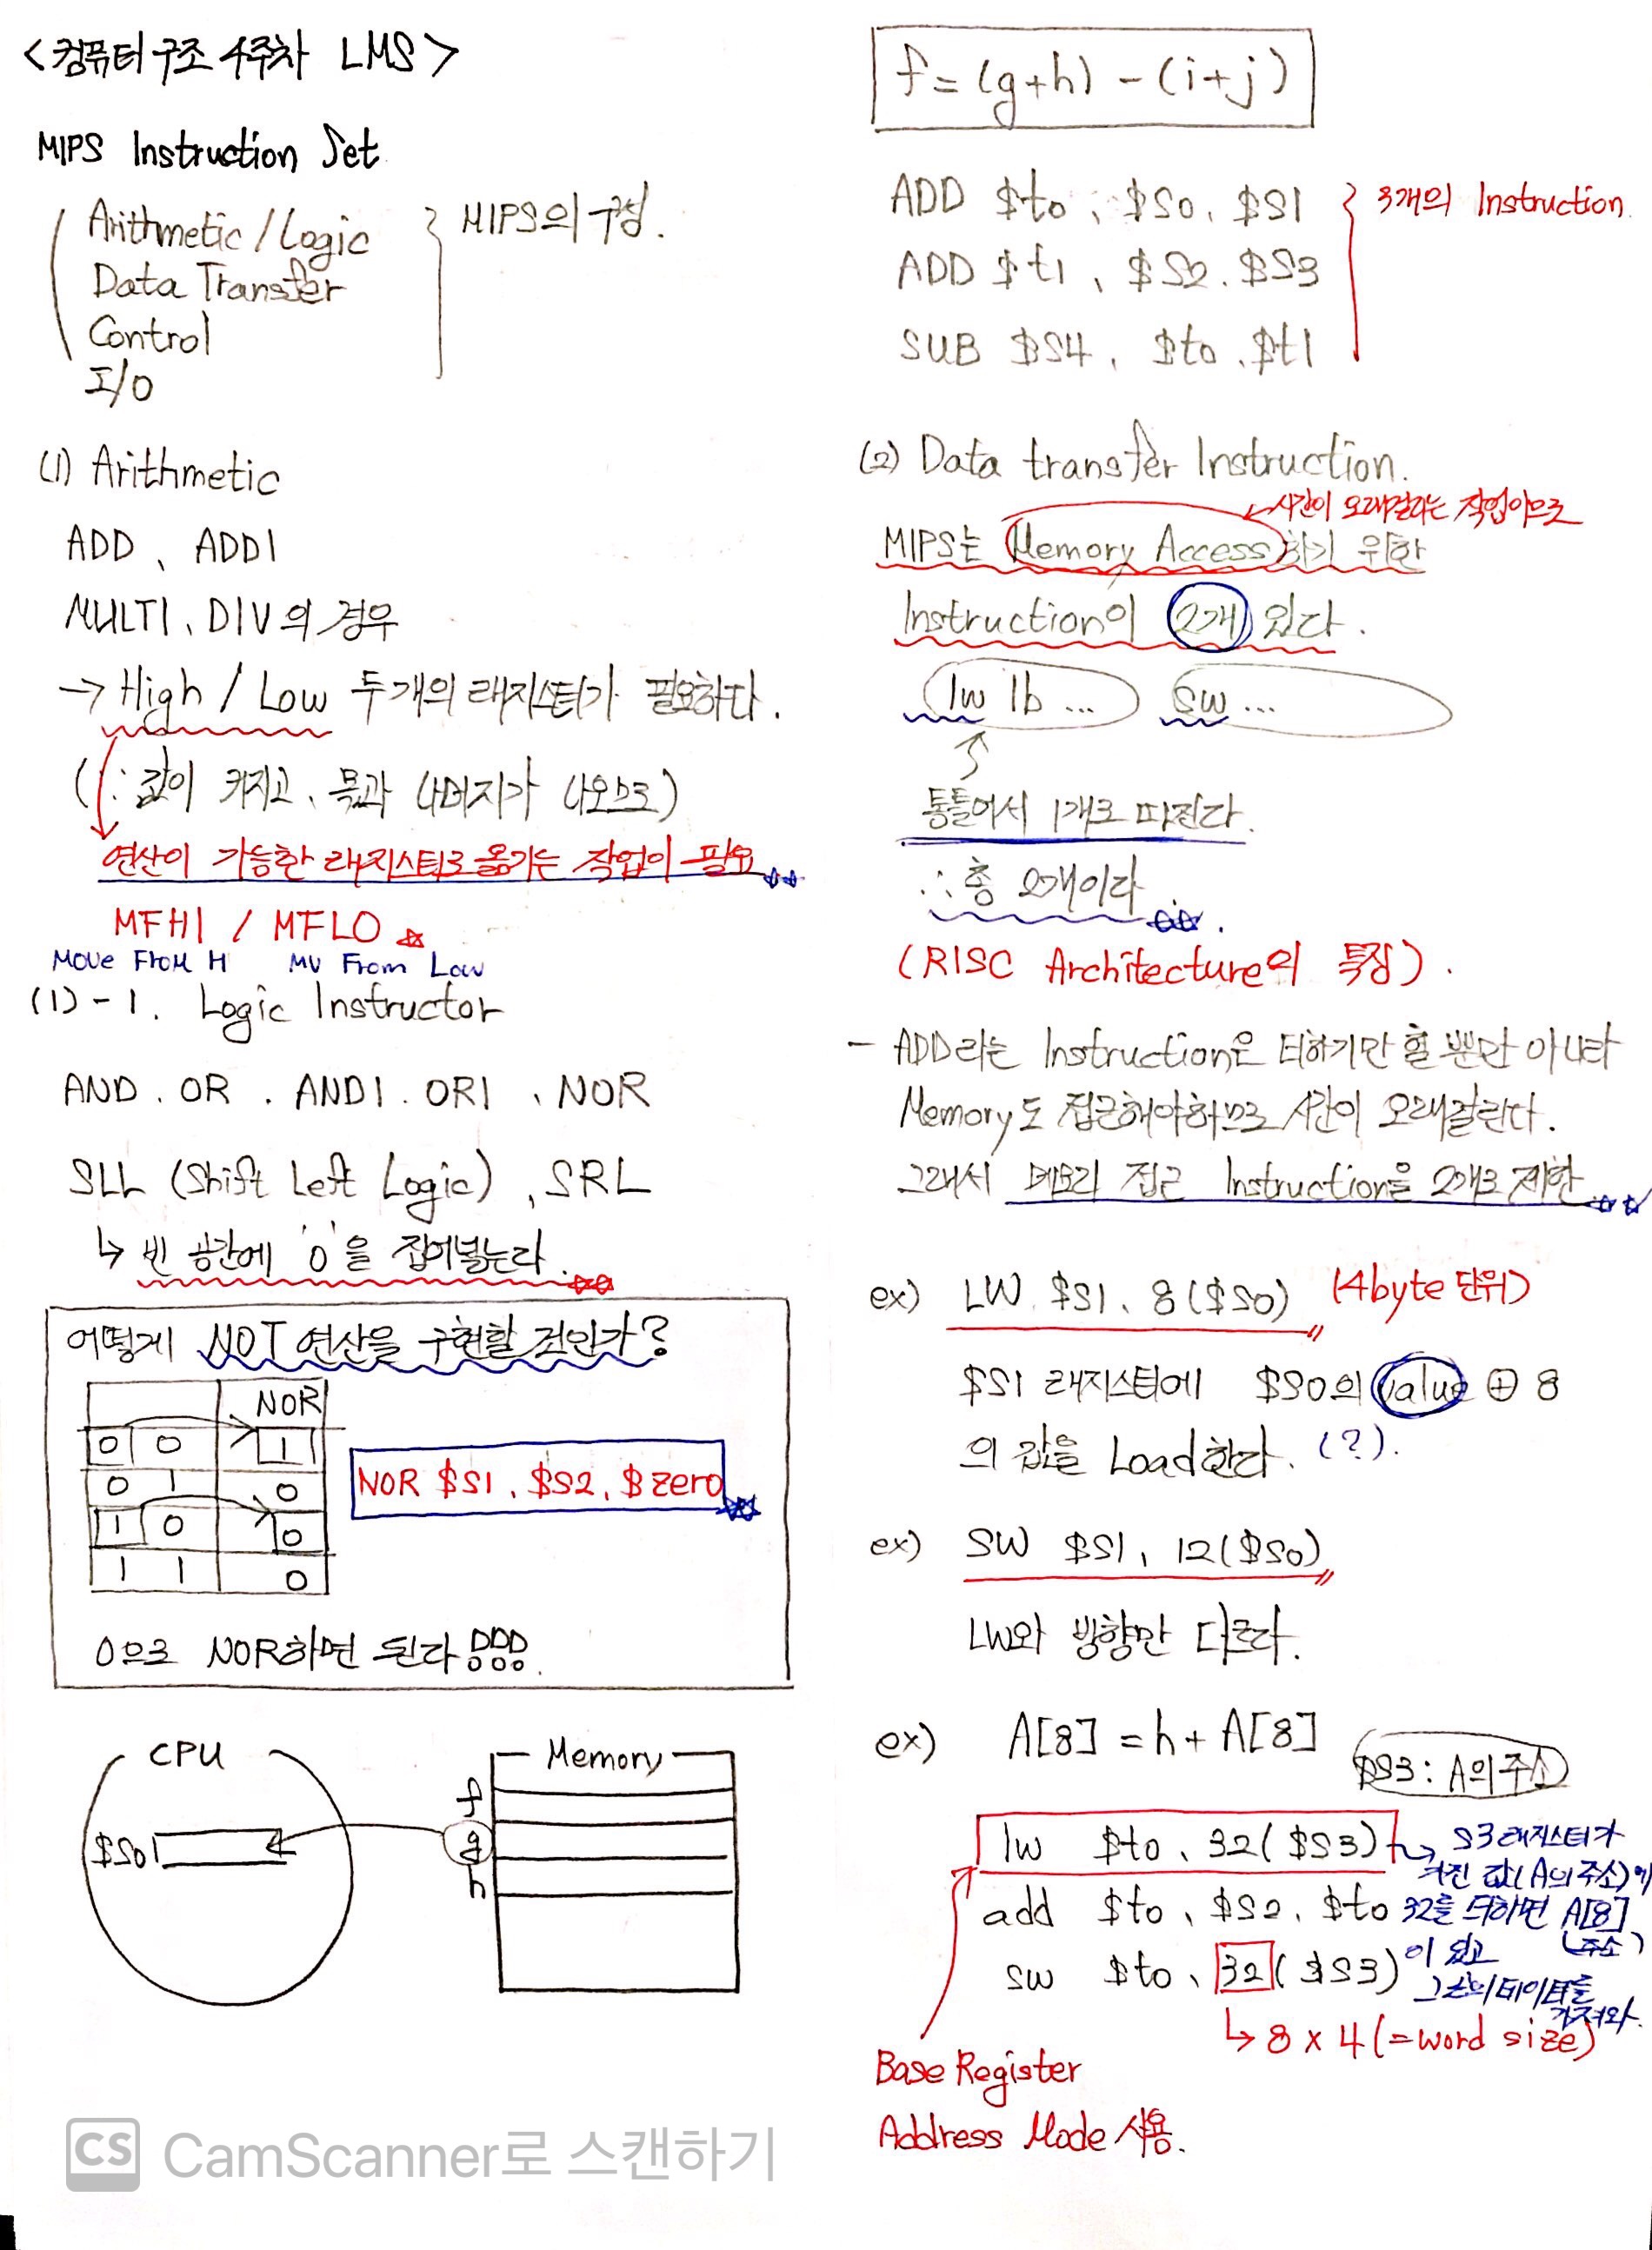 <컴퓨터 구조 4주차 LMS>
MIPS Instruction Set
Arithmetic / Logic
Data Transfer
Control
I/O
MIPS의 구성.
(1) Arithmetic
ADD, ADDI
MULTI, DIV의 경우
→ High / Low 두개의 래지스터가 필요하다.
(∵ 값이 커지고, 몫과 나머지가 나오므로)
연산이 가능한 래지스터로 옮기는 작업이 필요
MFHI / MFLO
Move From H MV From Low
(1)-1. Logic Instructor
AND. OR. ANDI. ORI, NOR
SLL (Shift Left Logic), SRL
↳ 빈 공간에 '0'을 집어넣는다.
어떻게 NOT 연산을 구현할 것인가?
NOR
0 0 1
0 1 0
1 0 0
1 1 0
NOR $S1, $S2, $zero
0으로 NOR하면 된다!!!
CPU
$S0
Memory
f
g
h
f = (g+h) - (i+j)
ADD $t0, $S0, $S1
ADD $t1, $S2. $S3
SUB $S4, $t0, $t1
3개의 Instruction.
(2) Data transfer Instruction.
시간이 오래걸리는 작업이므로
MIPS는 Memory Access하기 위한
Instruction이 2개 있다.
lw lb ... sw ...
통틀어서 1개로 따진다.
∴ 총 2개이다.
(RISC Architecture의 특징).
- ADD라는 Instruction은 더하기만 할 뿐만 아니라
Memory도 접근해야하므로 시간이 오래걸린다.
그래서 메모리 접근 Instruction을 2개로 제한
ex) LW $S1, 8($S0) (4byte 단위)
$S1 래지스터에 $S0의 value ⊕ 8
의 값을 Load한다. (?).
ex) SW $S1, 12($S0)
LW와 방향만 다르다.
ex) A[8] = h + A[8]
$S3: A의 주소
lw $t0, 32($S3)
add $t0, $S2, $t0
sw $t0, 32($S3)
→ S3 래지스터가
가진 값(A의 주소)에
32를 더하면 A[8]
(주소)
이 되고
그 안의 데이터를
가져와.
↳ 8 x 4 (=word size)
Base Register
Address Mode 사용.
CS CamScanner로 스캔하기